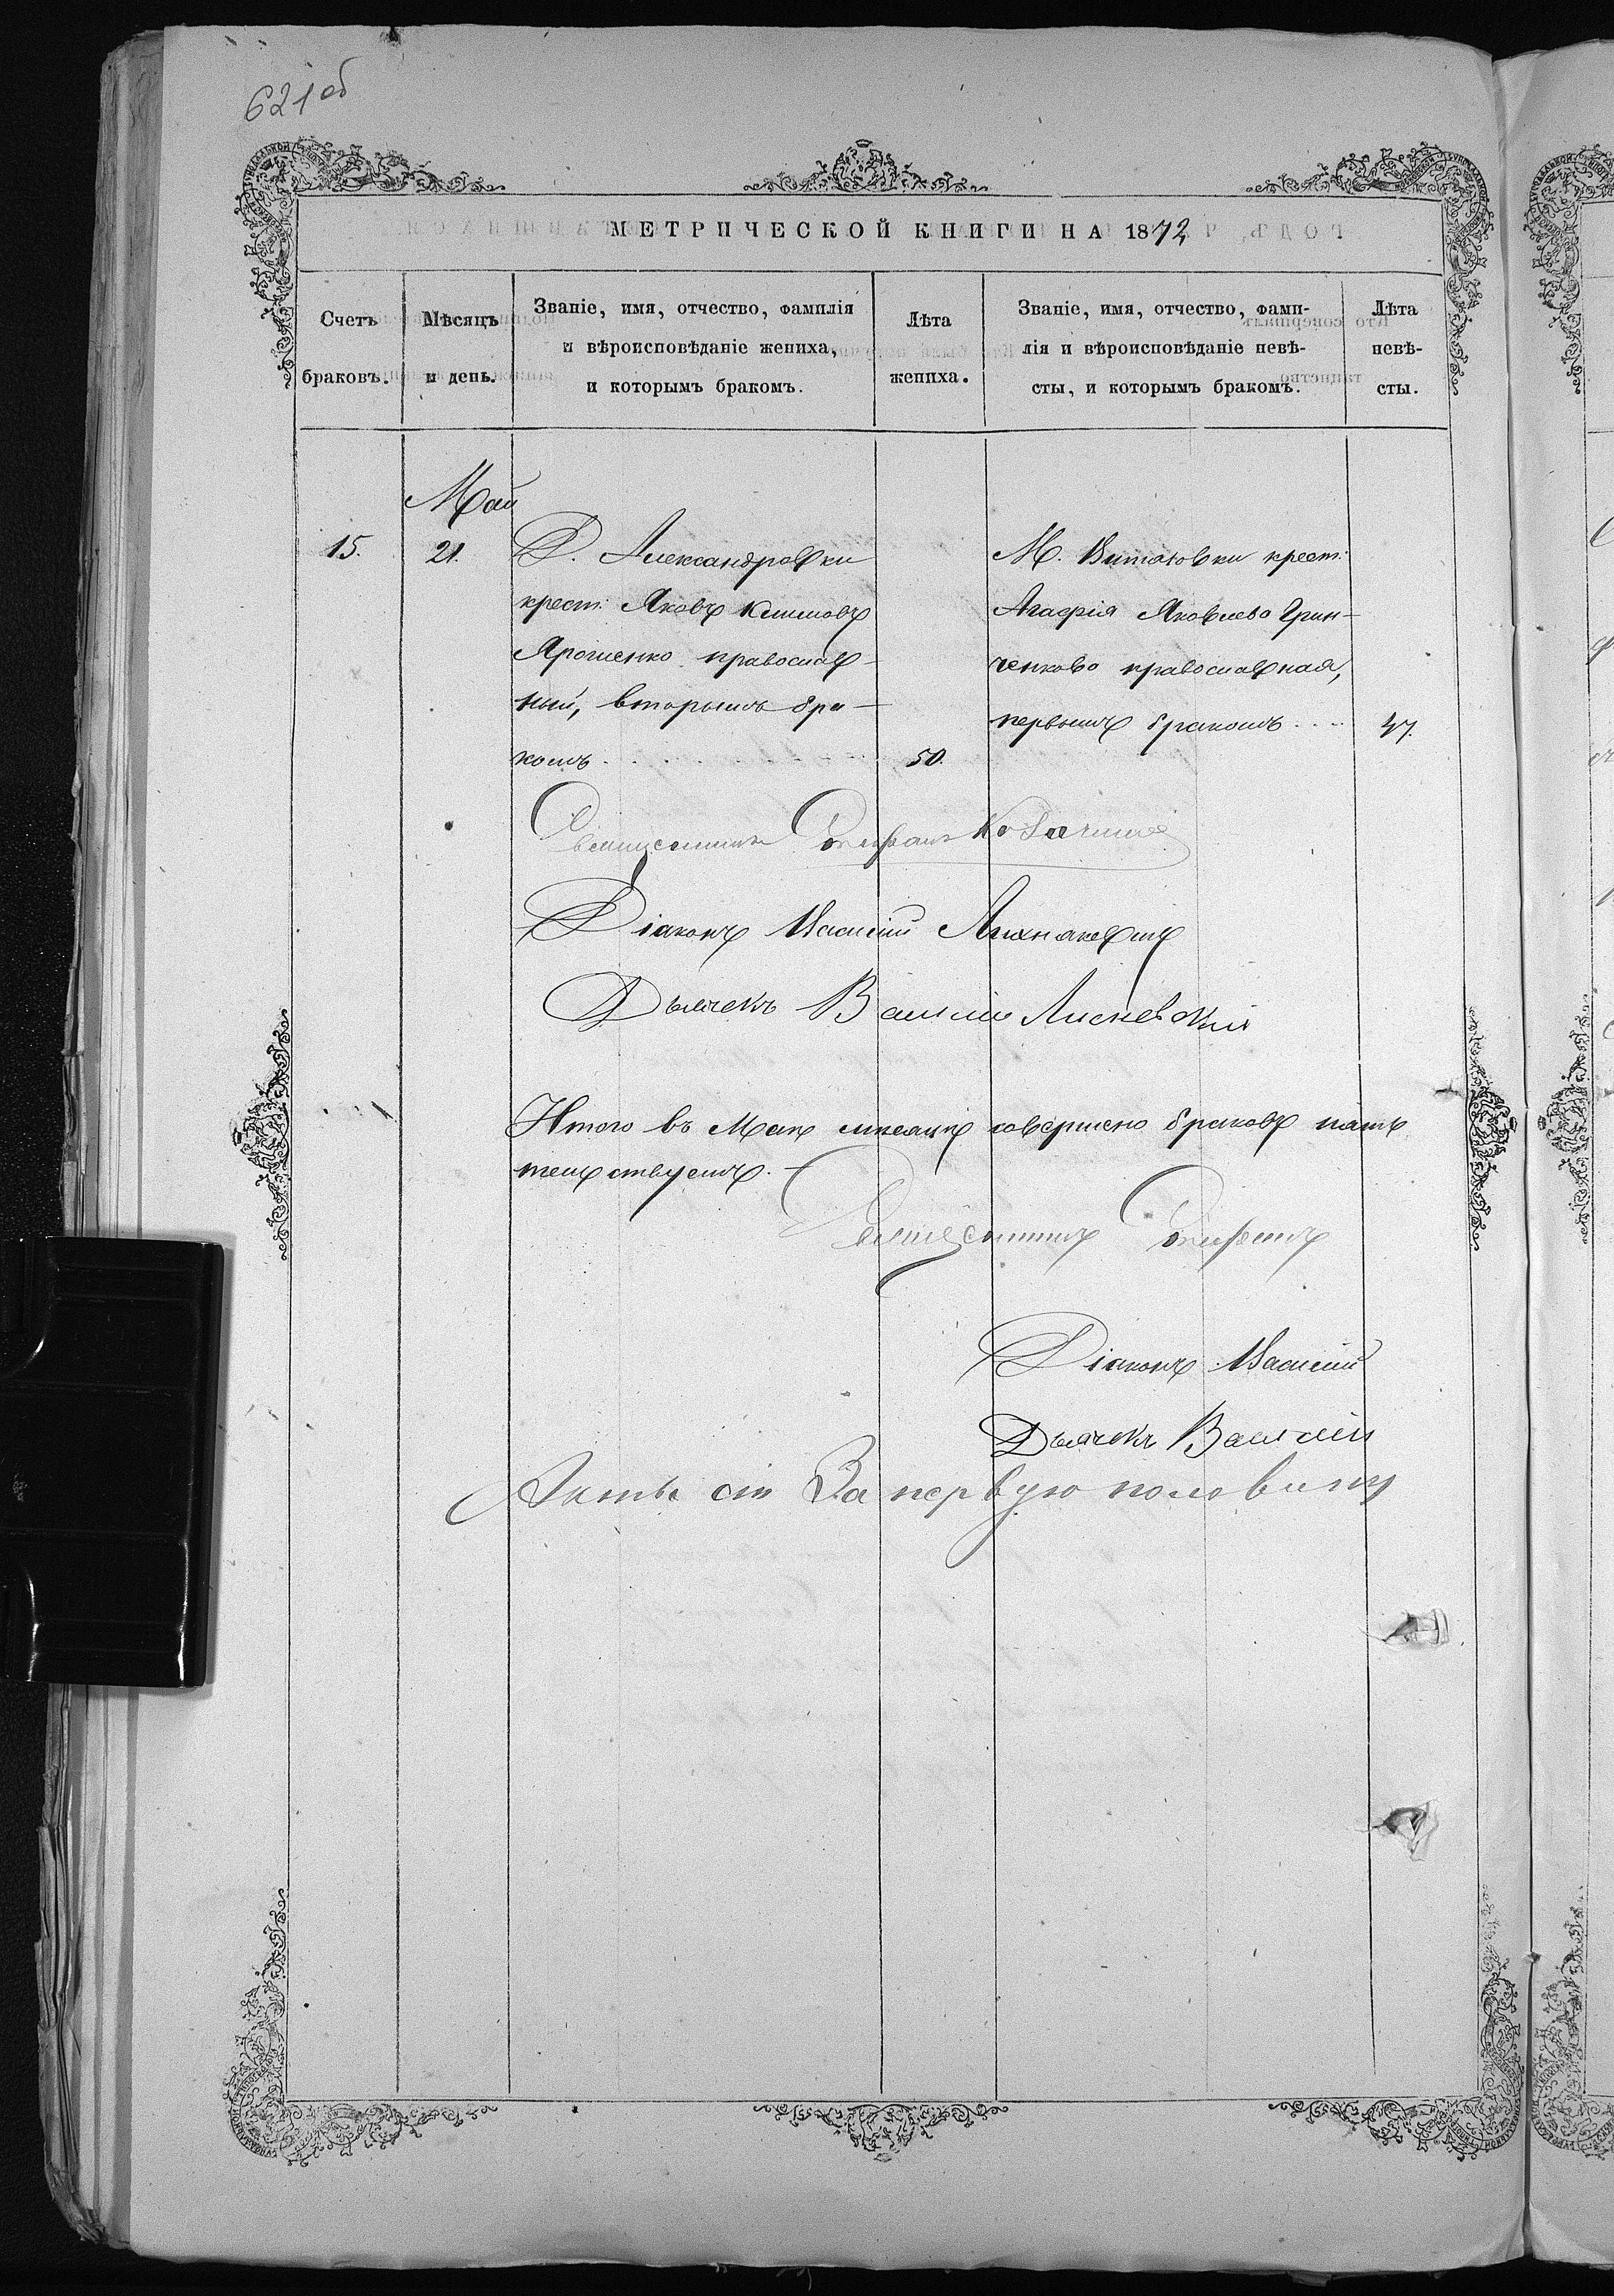 621 об
МЕТРИЧЕСКОЙ КНИГИ НА 1872
Счетъ браковъ.
Мѣсяцъ и день.
Званіе, имя, отчество, фамилія
и вѣроисповѣданіе жениха,
и которымъ бракомъ.
Лѣта
жениха.
Званіе, имя, отчество, фами-
лія и вѣроисповѣданіе невѣ-
сты, и которымъ бракомъ.
Лѣта
невѣ-
сты.
Май
15.
21.
Д. Александровки
крест: Яковъ Климовъ
Ярошенко православ-
ный, вторымъ бра-
комъ
50.
М. Витаковки крест:
Агафія Яковлева Грин-
ченкова православная,
первымъ бракомъ
47.
Священникъ Стефанъ
Діаконъ Василій
Дьячекъ Василій Лисневскій
Итого въ Маѣ мѣсяцѣ совершено браковъ пять
Священникъ Стефанъ
Діаконъ Василій
Дьячекъ Василій
Акты сіи За первую половину